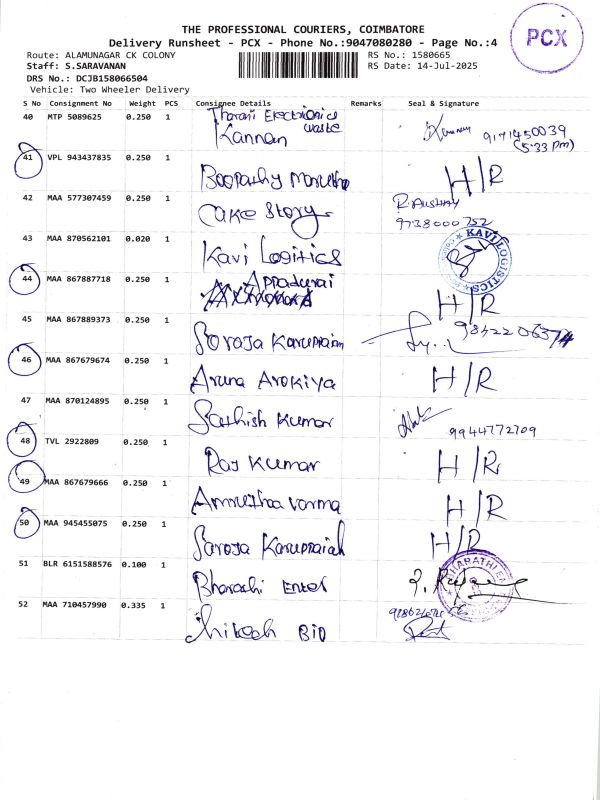 THE PROFESSIONAL COURIERS, COIMBATORE
Delivery Runsheet - PCX - Phone No.:9047080280 - Page No.:4
PCX
Route: ALAMUNAGAR CK COLONY RS No.: 1580665
Staff: S.SARAVANAN RS Date: 14-Jul-2025
DRS No.: DCJB158066504
Vehicle: Two Wheeler Delivery
S No Consignment No Weight PCS Consignee Details Remarks Seal & Signature
Tharani Electronics
waste
40 MTP 5089625 0.250 1 Kannan 9171450039
(5:33 pm)
41 VPL 943437835 0.250 1 Boopathy H/R
42 MAA 577307459 0.250 1 Cake Story
9738000752
43 MAA 870562101 0.020 1 Kavi Logitics KAVI LOGISTICS
44 MAA 867887718 0.250 1 Appadurai H/R
45 MAA 867889373 0.250 1 Saroja
46 MAA 867679674 0.250 1 Aruna Arokiya H/R
47 MAA 870124895 0.250 1 Sathish Kumar 9944772709
48 TVL 2922809 0.250 1 Raj Kumar H/R
49 MAA 867679666 0.250 1 Amrutha varma H/R
50 MAA 945455075 0.250 1 Saroja Karuppaiah H/R
51 BLR 6151588576 0.100 1 Bharathi Enter
52 MAA 710457990 0.335 1 Bio